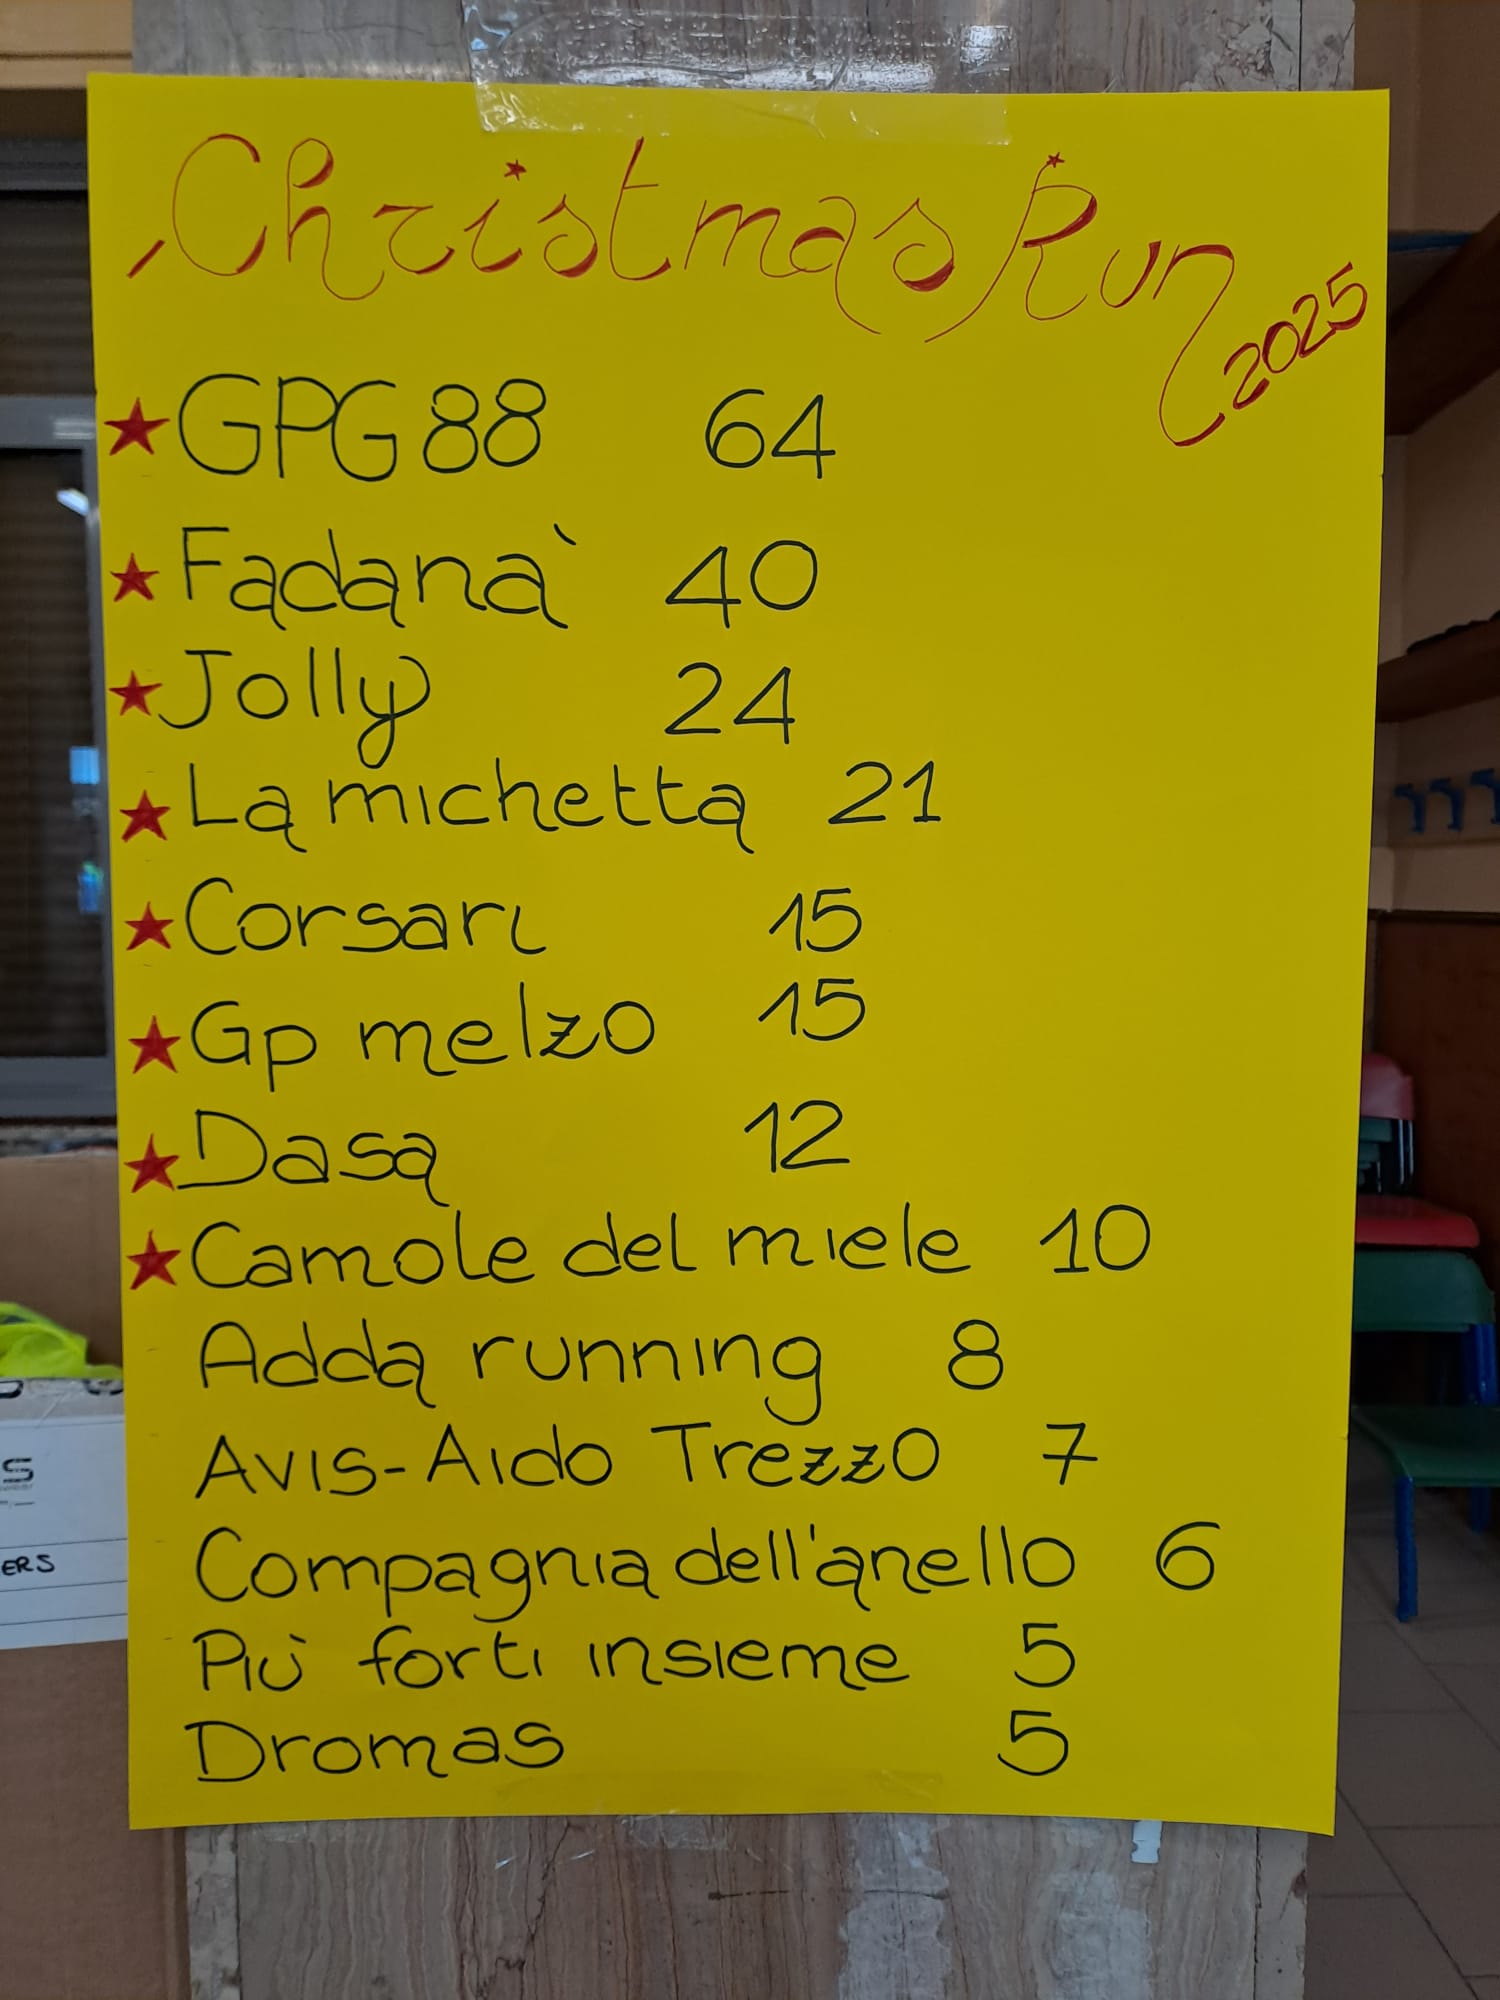 Christmas Run
2025
★ GPG88 64
★ Fadanà 40
★ Jolly 24
★ La michetta 21
★ Corsari 15
★ Gp melzo 15
★ Dasa 12
★ Camole del miele 10
Adda running 8
Avis-Aido Trezzo 7
Compagnia dell'anello 6
Più forti insieme 5
Dromas 5